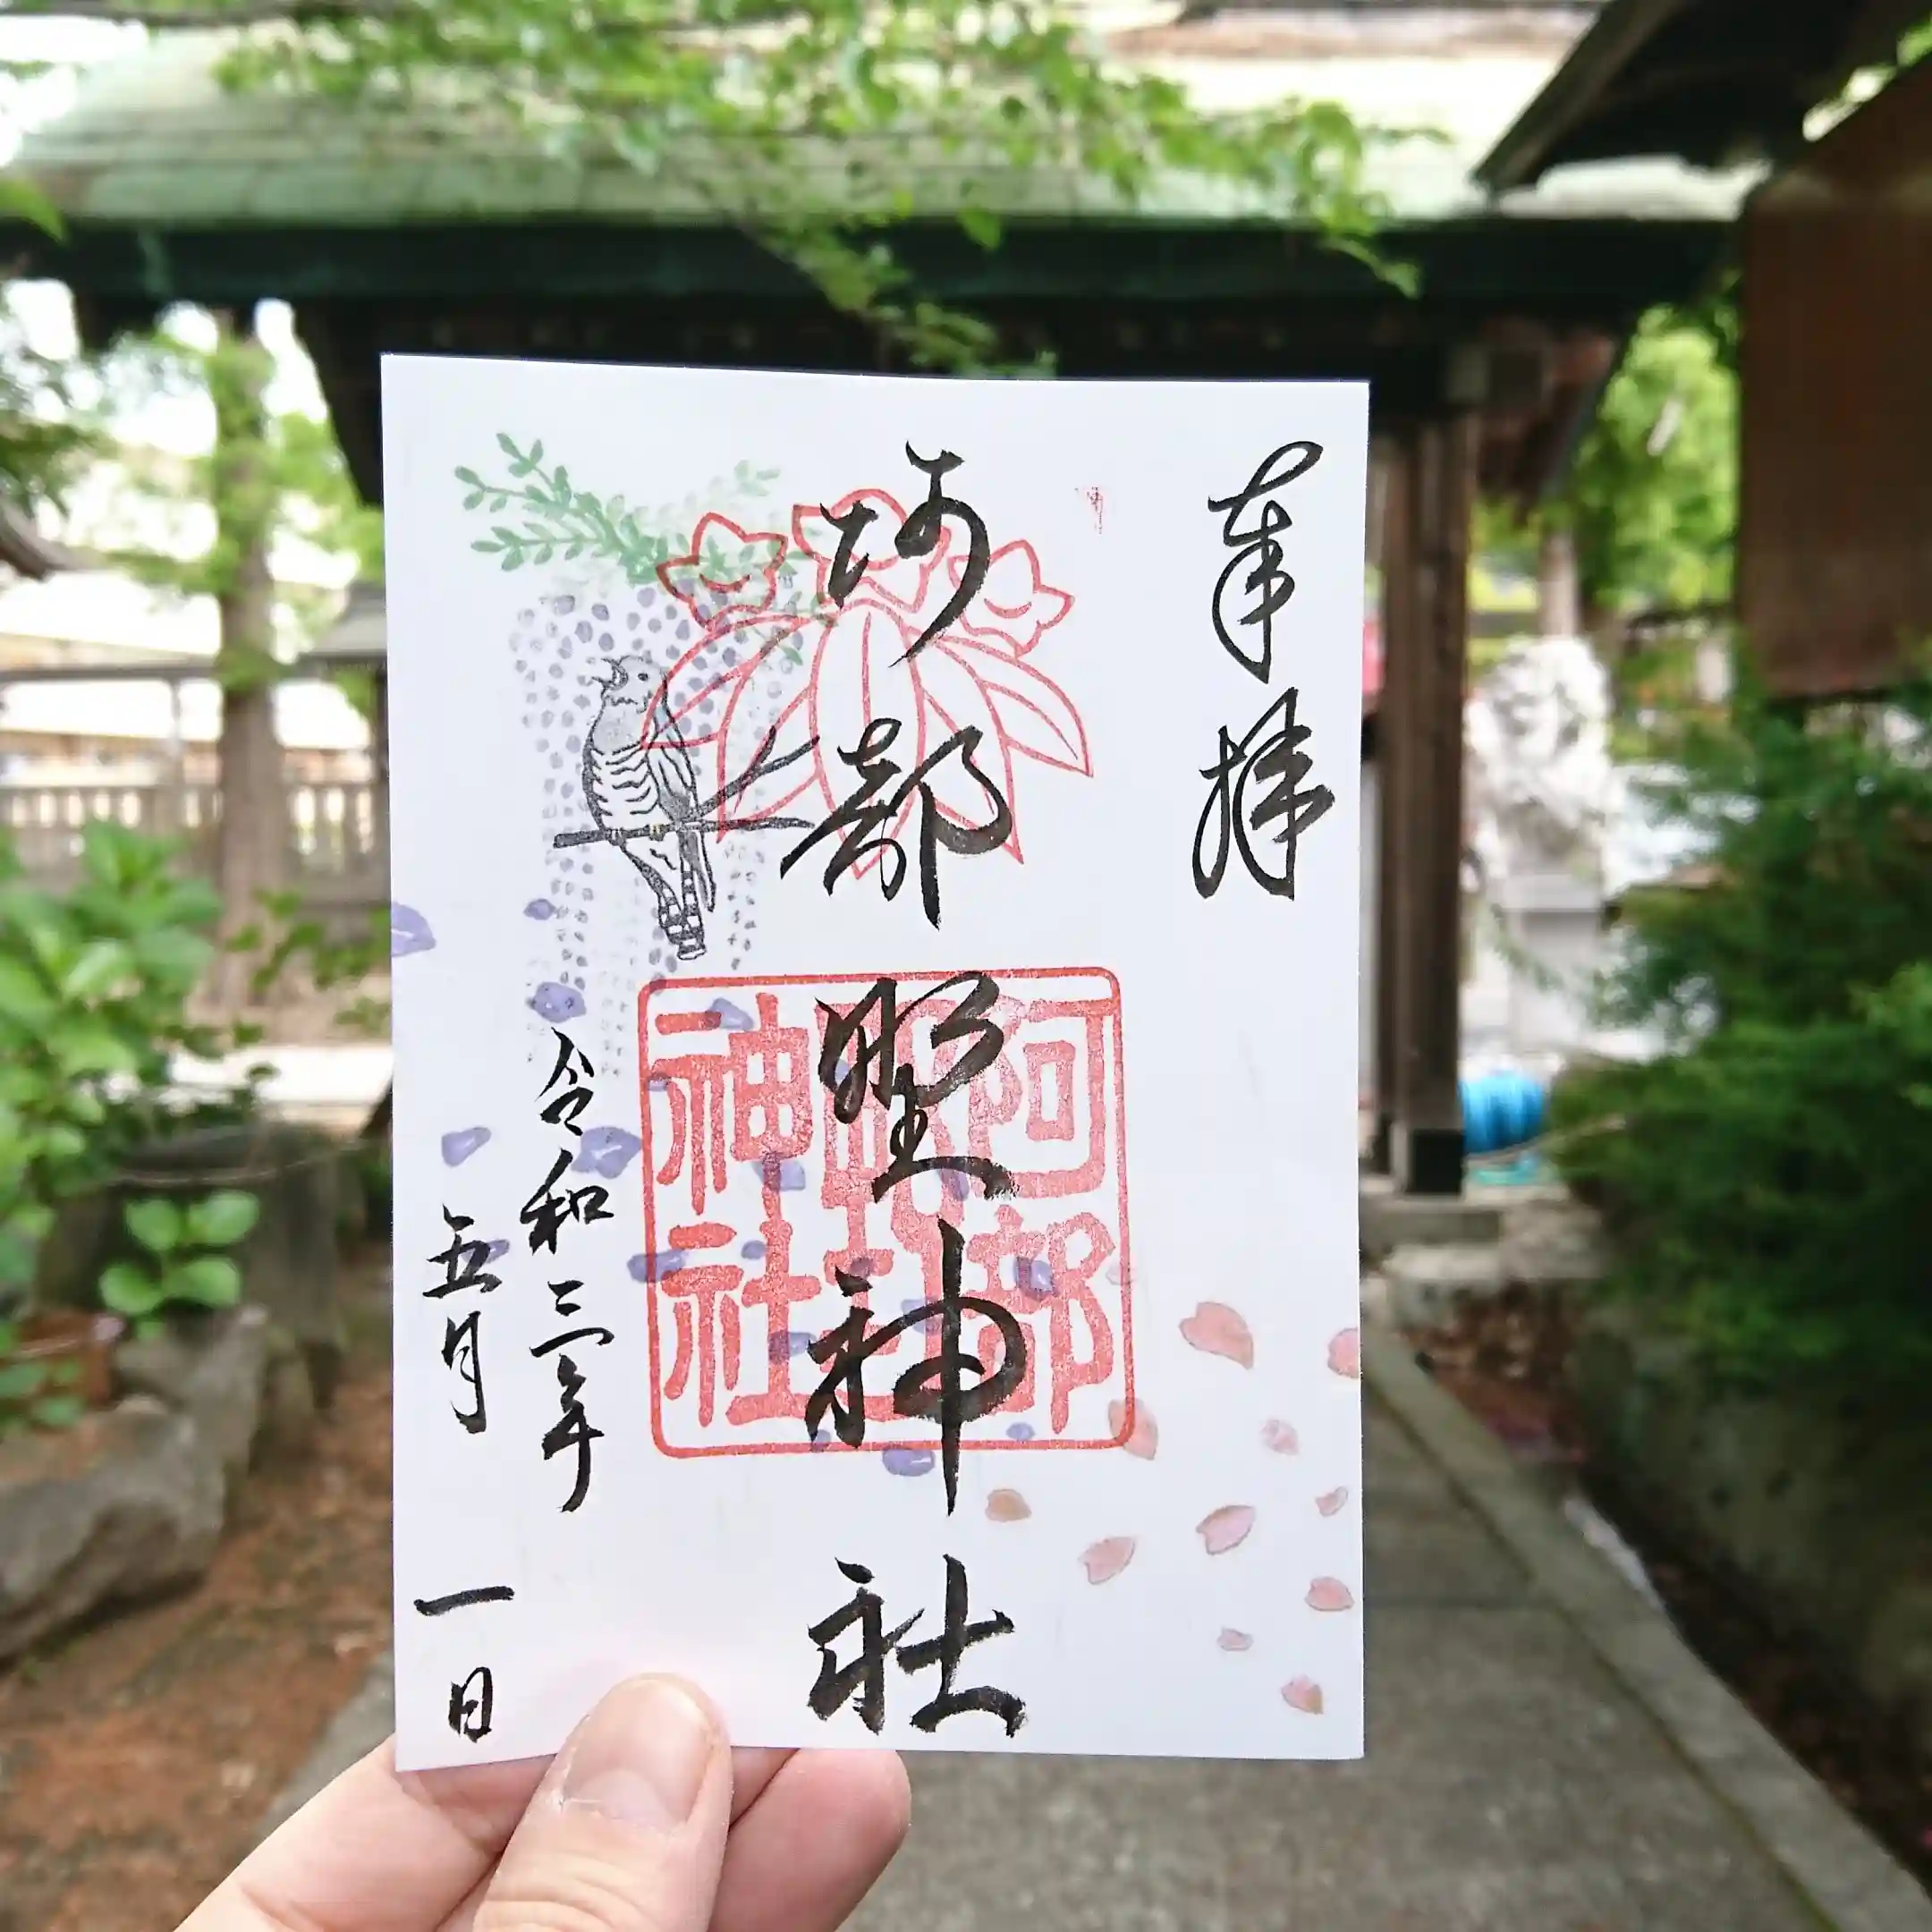 奉拝
阿部野神社
令和三年
五月一日
阿部
野
神社